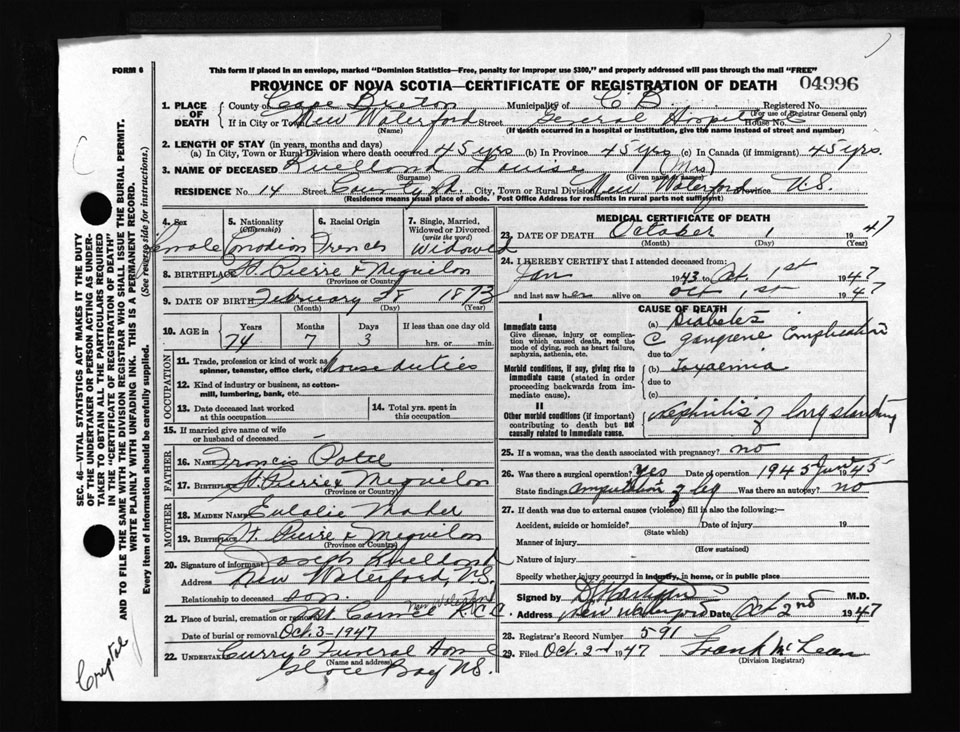 FORM 6
This form if placed in an envelope, marked "Dominion Statistics—Free, penalty for improper use $300," and properly addressed will pass through the mail "FREE"
PROVINCE OF NOVA SCOTIA—CERTIFICATE OF REGISTRATION OF DEATH 04996
1. PLACE OF DEATH
County of Cape Breton Municipality of C B Registered No.
(For use of Registrar General only)
If in City or Town New Waterford Street General Hospital House No.
(Name) (If death occurred in a hospital or institution, give the name instead of street and number)
2. LENGTH OF STAY (in years, months and days)
(a) In City, Town or Rural Division where death occurred 45 yrs (b) In Province 45 yrs (c) In Canada (if immigrant) 45 yrs.
3. NAME OF DECEASED Louise (Mrs)
(Surname) (Given name or names)
RESIDENCE No. 14 Street County Rd. City, Town or Rural Division New Waterford Province N.S.
(Residence means usual place of abode. Post Office Address for residents in rural parts not sufficient)
4. Sex
Female
5. Nationality
(Citizenship)
Canadian
6. Racial Origin
French
7. Single, Married, Widowed or Divorced
(write the word)
Widowed
8. BIRTHPLACE St. Pierre & Miquelon
(Province or Country)
9. DATE OF BIRTH February 28 1873
(Month) (Day) (Year)
10. AGE in
Years Months Days If less than one day old
74 7 3 hrs. or min.
OCCUPATION
11. Trade, profession or kind of work as spinner, teamster, office clerk, etc. House duties
12. Kind of industry or business, as cotton-mill, lumbering, bank, etc.
13. Date deceased last worked at this occupation
14. Total yrs. spent in this occupation
15. If married give name of wife or husband of deceased
FATHER
16. Name Francis
17. Birthplace St. Pierre & Miquelon
(Province or Country)
MOTHER
18. Maiden Name Eulalie
19. Birthplace St. Pierre & Miquelon
(Province or Country)
20. Signature of informant Joseph
Address New Waterford, N.S.
Relationship to deceased son.
21. Place of burial, cremation or removal Mt Carmel R.C.C. New Waterford
Date of burial or removal Oct. 3 - 1947
22. Undertaker Curry's Funeral Home
(Name and address)
Glace Bay N.S.
MEDICAL CERTIFICATE OF DEATH
23. DATE OF DEATH October 1 1947
(Month) (Day) (Year)
24. I HEREBY CERTIFY that I attended deceased from:
Jan 1943 to Oct. 1st 1947
and last saw her alive on Oct 1st 1947
I
Immediate cause
Give disease, injury or complication which caused death, not the mode of dying, such as heart failure, asphyxia, asthenia, etc.
Morbid conditions, if any, giving rise to immediate cause (stated in order proceeding backwards from immediate cause).
II
Other morbid conditions (if important) contributing to death but not causally related to immediate cause.
CAUSE OF DEATH
(a) Diabetes
C gangrene Complication
due to
(b) Toxaemia
due to
(c)
Nephritis of long standing
25. If a woman, was the death associated with pregnancy? no
26. Was there a surgical operation? Yes Date of operation 1945 June 1945
State findings amputation of leg Was there an autopsy? no
27. If death was due to external causes (violence) fill in also the following:—
Accident, suicide or homicide? Date of injury 19
(State which)
Manner of injury
(How sustained)
Nature of injury
Specify whether injury occurred in industry, in home, or in public place
Signed by M.D.
Address New Waterford Date Oct 2nd 1947
28. Registrar's Record Number 591
29. Filed Oct. 2nd 1947 Frank McLean
(Division Registrar)
SEC. 46—VITAL STATISTICS ACT MAKES IT THE DUTY
OF THE UNDERTAKER OR PERSON ACTING AS UNDER-
TAKER TO OBTAIN ALL THE PARTICULARS REQUIRED
IN THE "CERTIFICATE OF REGISTRATION OF DEATH"
AND TO FILE THE SAME WITH THE DIVISION REGISTRAR WHO SHALL ISSUE THE BURIAL PERMIT.
WRITE PLAINLY WITH UNFADING INK. THIS IS A PERMANENT RECORD.
Every item of information should be carefully supplied. (See reverse side for instructions.)